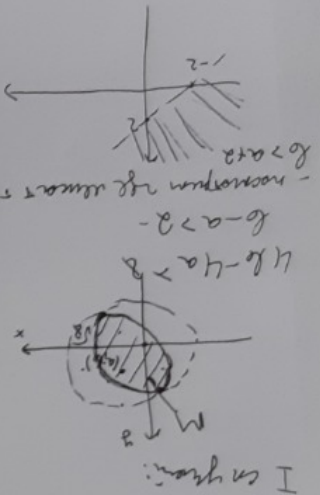 I случай:
y
M
(a; b)
√8
x
4b-4a > 8
b-a > 2 -
- посмотрим где лежат
b > a+2
2
-2